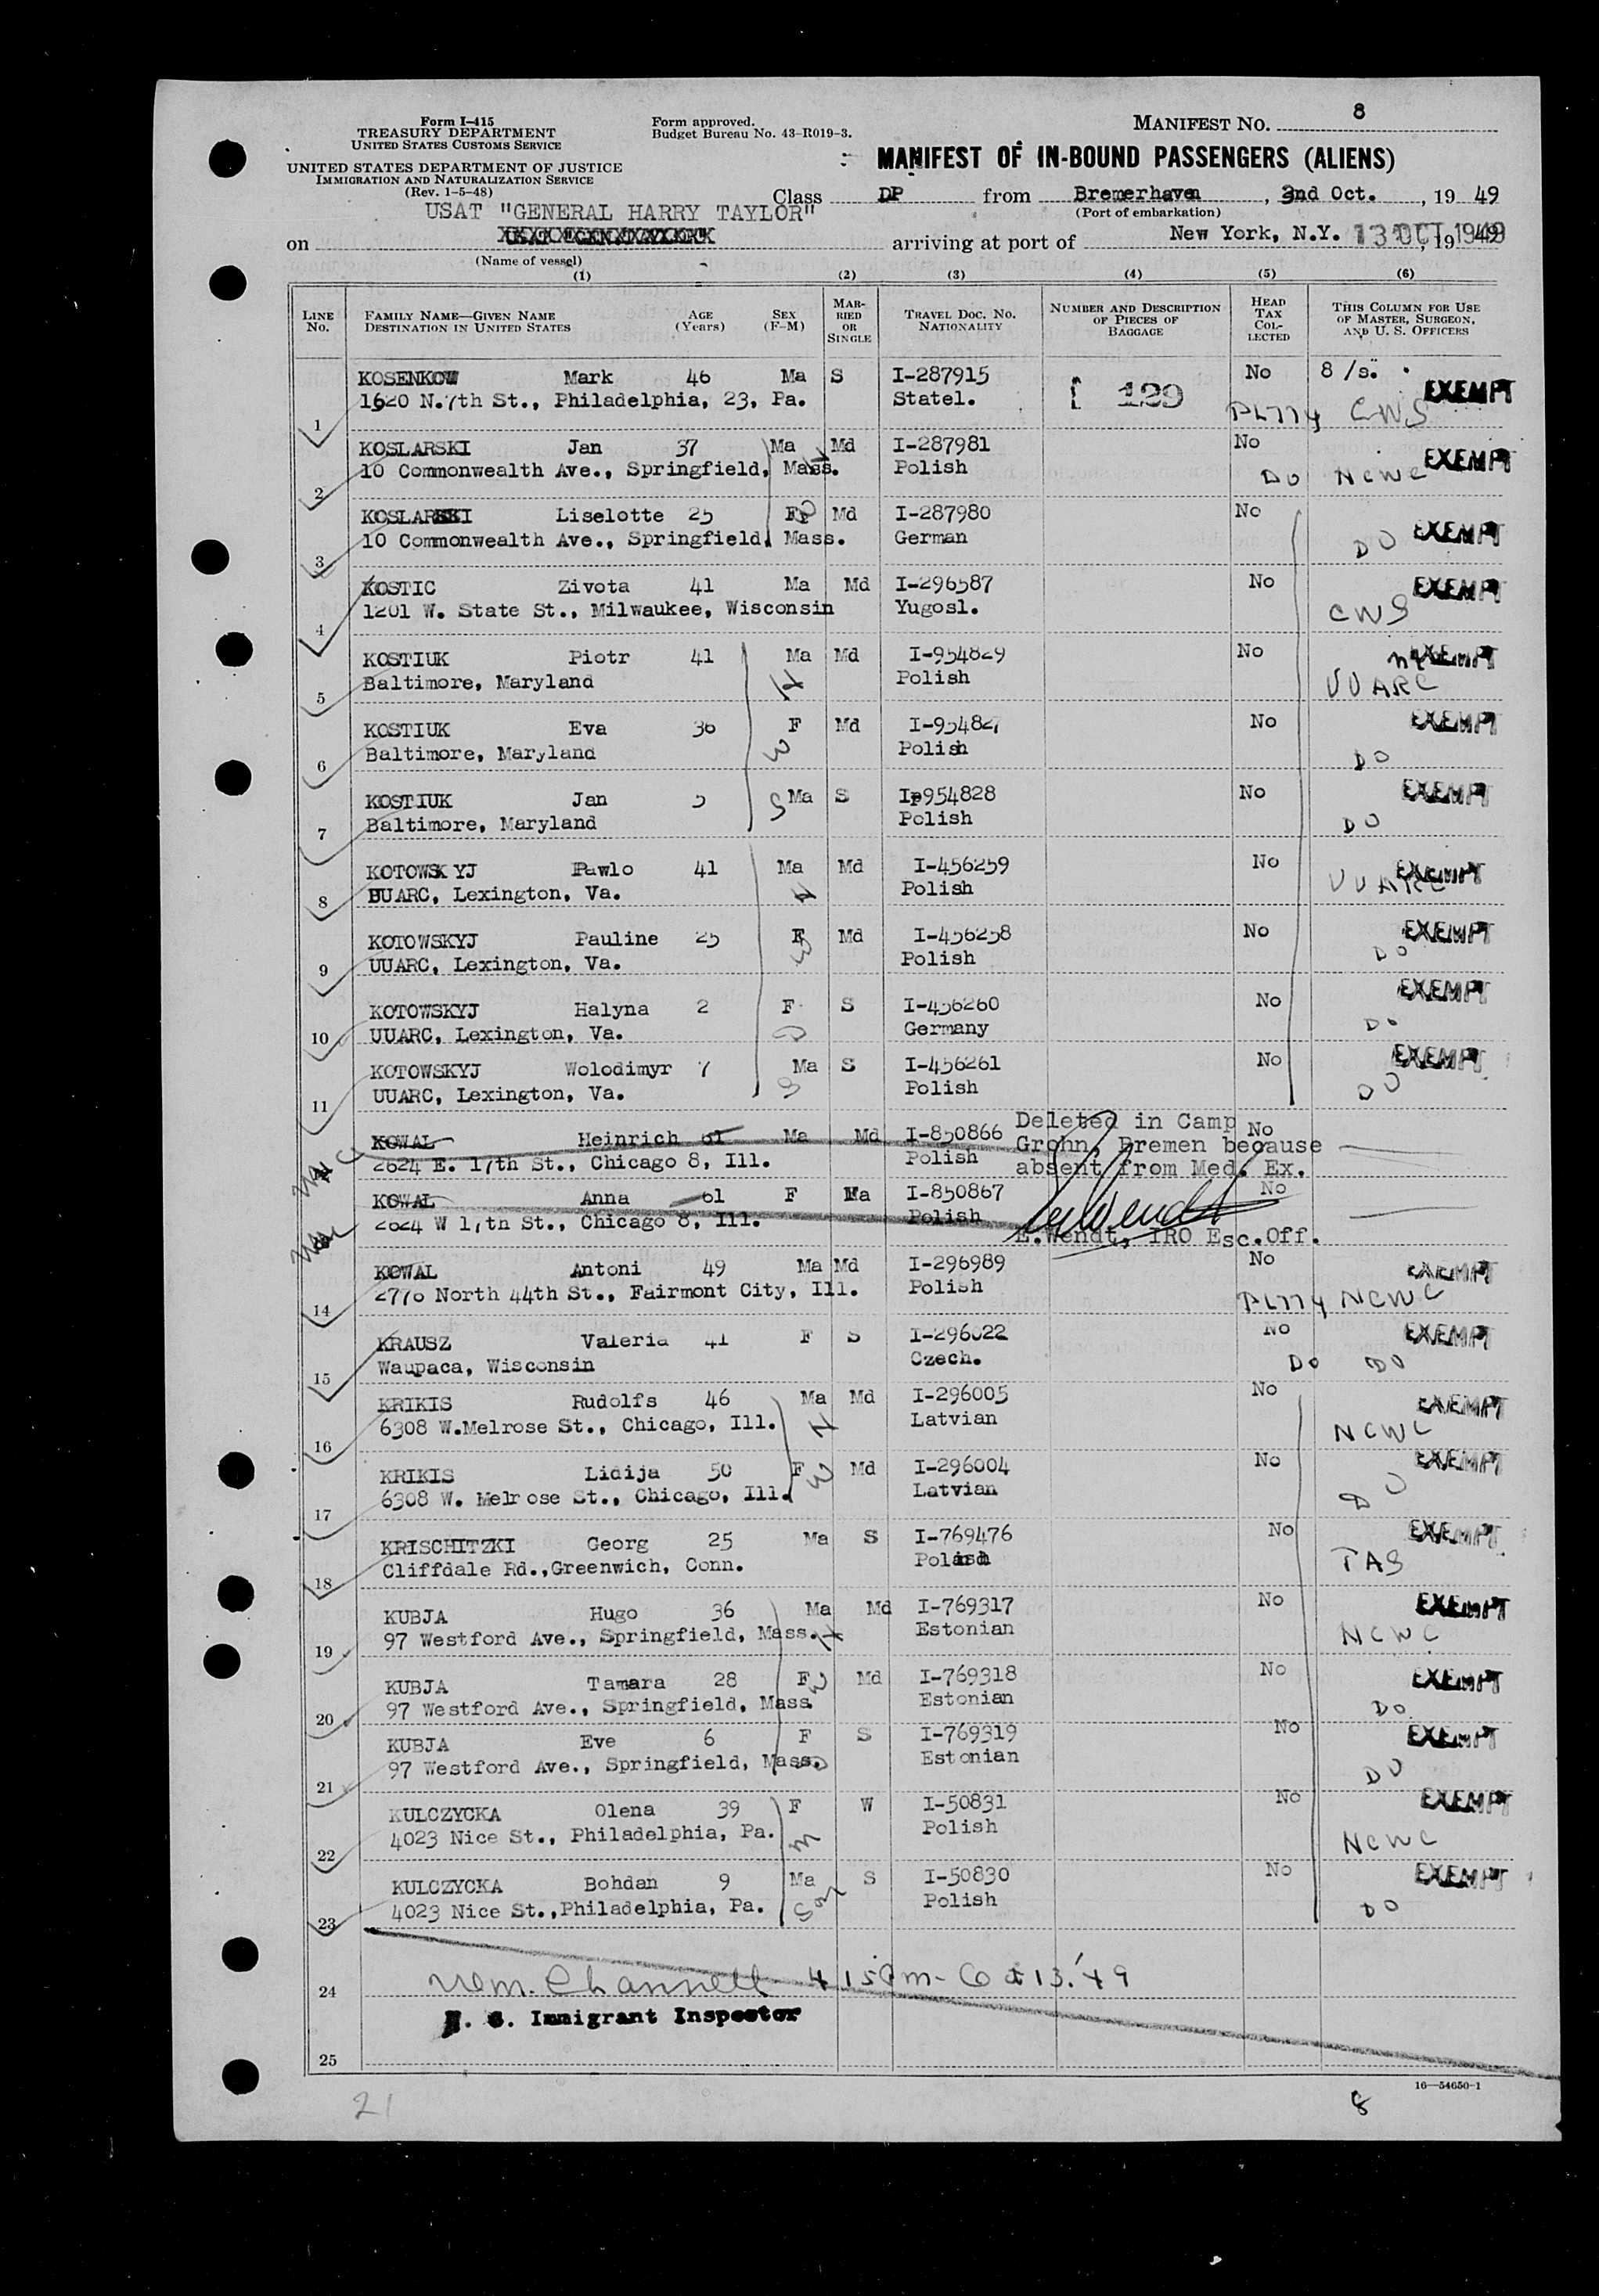 Form I-415
TREASURY DEPARTMENT
UNITED STATES CUSTOMS SERVICE
Form approved.
Budget Bureau No. 43-R019-3.
MANIFEST NO. 8
UNITED STATES DEPARTMENT OF JUSTICE
IMMIGRATION AND NATURALIZATION SERVICE
(Rev. 1-5-48)
MANIFEST OF IN-BOUND PASSENGERS (ALIENS)
Class DP from Bremerhaven, 2nd Oct., 19 49
(Port of embarkation)
USAT "GENERAL HARRY TAYLOR"
on arriving at port of New York, N.Y. 13 OCT 1949, 19 49
(Name of vessel)
(1) (2) (3) (4) (5) (6)
LINE No. FAMILY NAME—GIVEN NAME DESTINATION IN UNITED STATES AGE (Years) SEX (F-M) MARRIED OR SINGLE TRAVEL DOC. NO. NATIONALITY NUMBER AND DESCRIPTION OF PIECES OF BAGGAGE HEAD TAX COLLECTED THIS COLUMN FOR USE OF MASTER, SURGEON, AND U. S. OFFICERS
KOSENKOW Mark 46 Ma S I-287915 No 8 /s. EXEMPT
1 1620 N.7th St., Philadelphia, 23, Pa. Statel. 129 PL774 CWS
KOSLARSKI Jan 37 Ma Md I-287981 No EXEMPT
2 10 Commonwealth Ave., Springfield, Mass. H Polish DO NCWC
KOSLARSKI Liselotte 25 F Md I-287980 No EXEMPT
3 10 Commonwealth Ave., Springfield, Mass. German DO
KOSTIC Zivota 41 Ma Md I-296587 No EXEMPT
4 1201 W. State St., Milwaukee, Wisconsin Yugosl. CWS
KOSTIUK Piotr 41 Ma Md I-954829 No EXEMPT
5 Baltimore, Maryland H Polish UUARC
KOSTIUK Eva 36 F Md I-954827 No EXEMPT
6 Baltimore, Maryland W Polish DO
KOSTIUK Jan 5 Ma S I-954828 No EXEMPT
7 Baltimore, Maryland S Polish DO
KOTOWSKYJ Pawlo 41 Ma Md I-456259 No EXEMPT
8 UUARC, Lexington, Va. H Polish UUARC
KOTOWSKYJ Pauline 25 F Md I-456258 No EXEMPT
9 UUARC, Lexington, Va. W Polish DO
KOTOWSKYJ Halyna 2 F S I-456260 No EXEMPT
10 UUARC, Lexington, Va. D Germany DO
KOTOWSKYJ Wolodimyr 7 Ma S I-456261 No EXEMPT
11 UUARC, Lexington, Va. S Polish DO
KOWAL Heinrich 61 Ma Md I-850866 No
2624 E. 17th St., Chicago 8, Ill. Polish
Deleted in Camp
Grohn, Bremen because
absent from Med. Ex.
KOWAL Anna 61 F I-850867 No
2624 W 17th St., Chicago 8, Ill. Polish
E.Wendt
E.Wendt, IRO Esc.Off.
KOWAL Antoni 49 Ma Md I-296989 No EXEMPT
14 2776 North 44th St., Fairmont City, Ill. Polish PL774 NCWC
KRAUSZ Valeria 41 F S I-296022 No EXEMPT
15 Waupaca, Wisconsin Czech. DO DO
KRIKIS Rudolfs 46 Ma Md I-296005 No EXEMPT
16 6308 W.Melrose St., Chicago, Ill. H Latvian NCWC
KRIKIS Lidija 50 F Md I-296004 No EXEMPT
17 6308 W. Melrose St., Chicago, Ill. W Latvian DO
KRISCHITZKI Georg 25 Ma S I-769476 No EXEMPT
18 Cliffdale Rd.,Greenwich, Conn. TAS
KUBJA Hugo 36 Ma Md I-769317 No EXEMPT
19 97 Westford Ave., Springfield, Mass. H Estonian NCWC
KUBJA Tamara 28 F Md I-769318 No EXEMPT
20 97 Westford Ave., Springfield, Mass. W Estonian DO
KUBJA Eve 6 F S I-769319 No EXEMPT
21 97 Westford Ave., Springfield, Mass. D Estonian DO
KULCZYCKA Olena 39 F W I-50831 No EXEMPT
22 4023 Nice St., Philadelphia, Pa. M Polish NCWC
KULCZYCKA Bohdan 9 Ma S I-50830 No EXEMPT
23 4023 Nice St.,Philadelphia, Pa. Son Polish DO
24 Wm. Channell 4 15 Pm - Oct 13.'49
U. S. Immigrant Inspector
25
16—54650-1
21 8